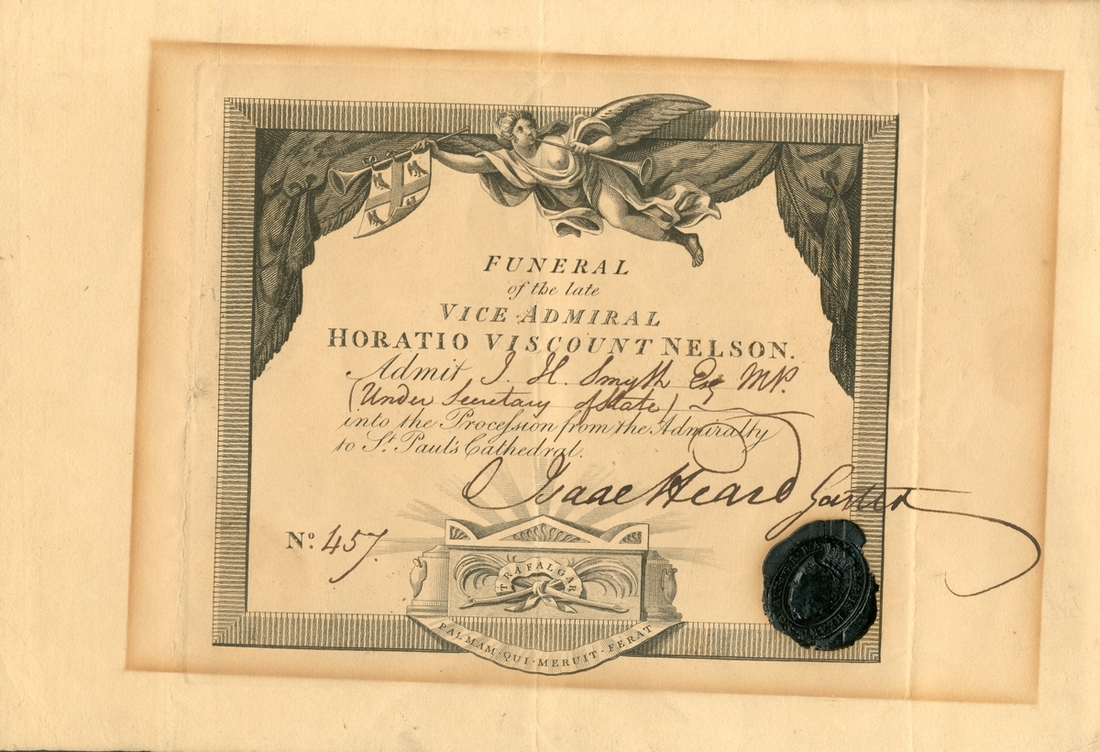 FUNERAL
of the late
VICE·ADMIRAL
HORATIO VISCOUNT NELSON.
Admit J. H. Smyth Esq MP.
(Under Secretary of State)
into the Proceſsion from the Admiralty
to St. Paul's Cathedral.
Isaac Heard Garter
No. 457.
TRAFALGAR
PALMAM·QUI·MERUIT·FERAT